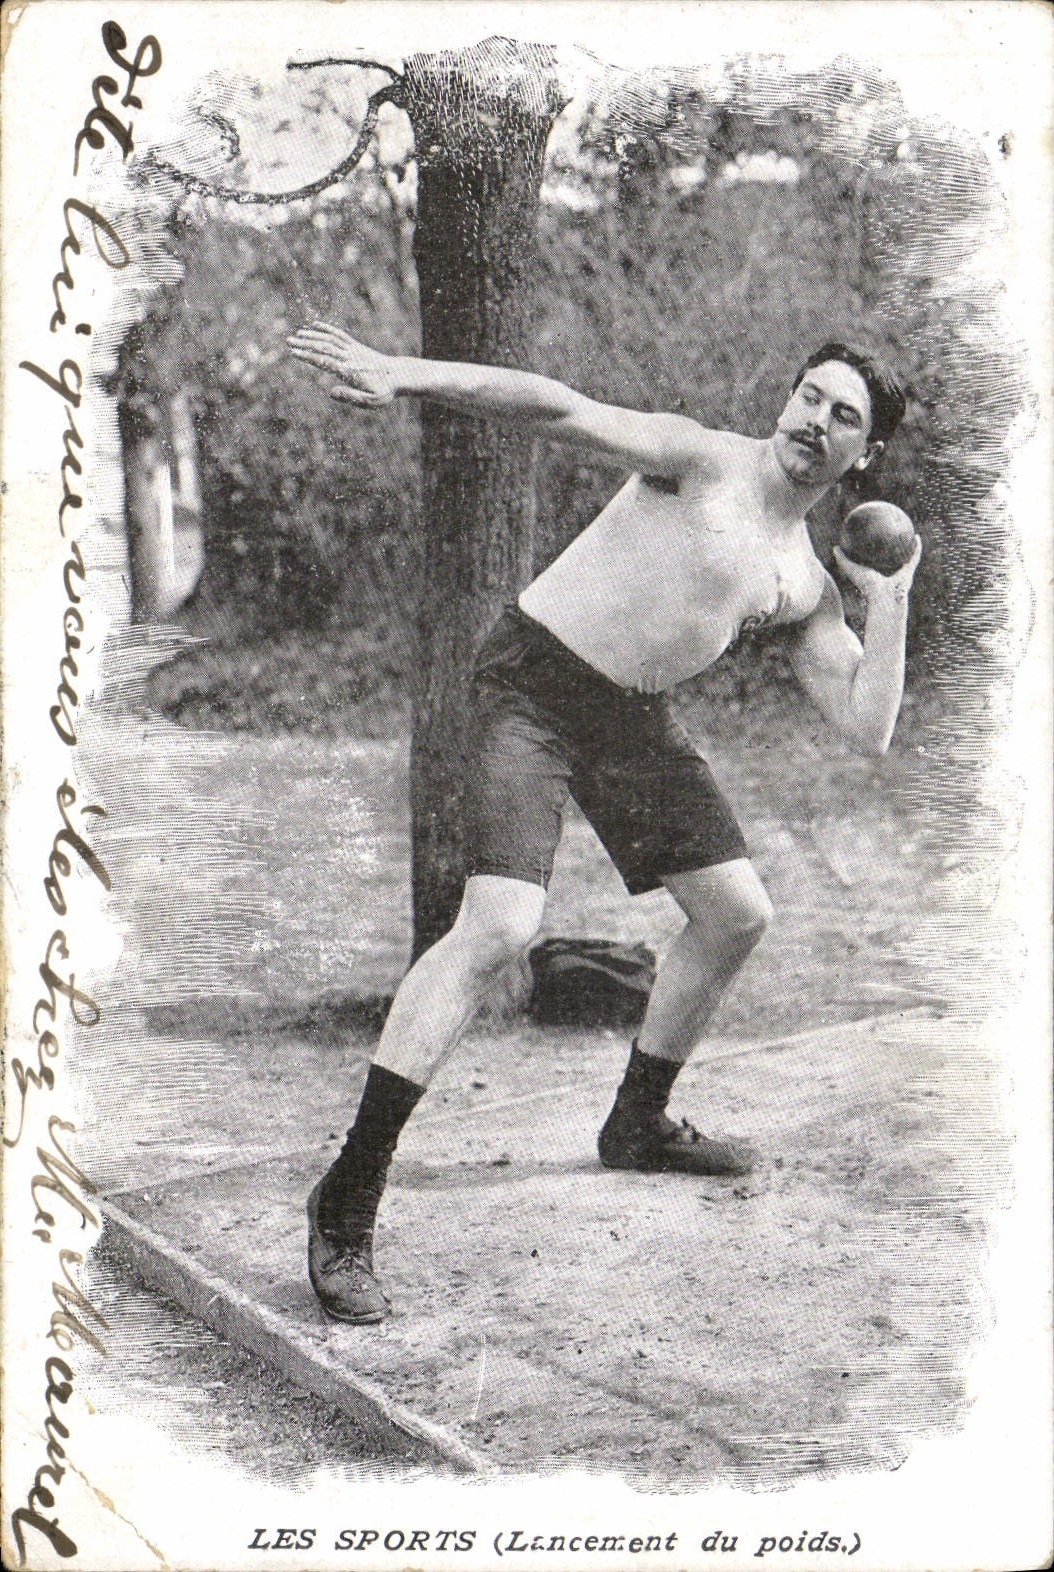 Dite lui que vous
chez Mr Mauret
LES SPORTS (Lancement du poids.)